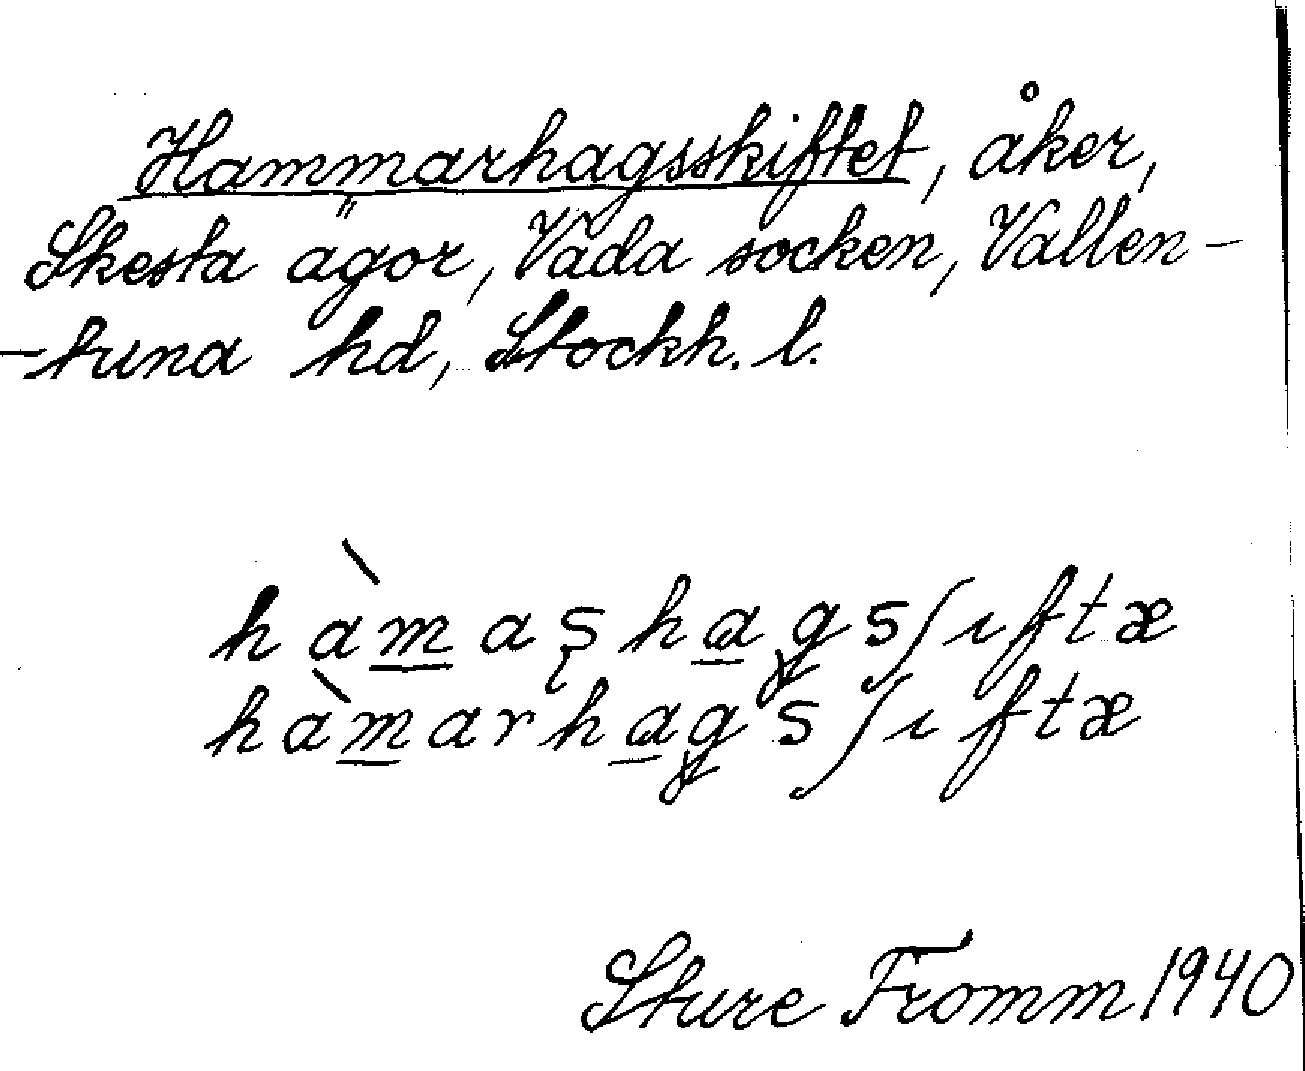 Hammarhagsskiftet, åker,
Skesta ägor, Vada socken, Vallen-
-tuna hd, Stockh. l.
hàmaʂhagsʃıftæ
hàmarhagsʃıftæ
Sture Fromm 1940